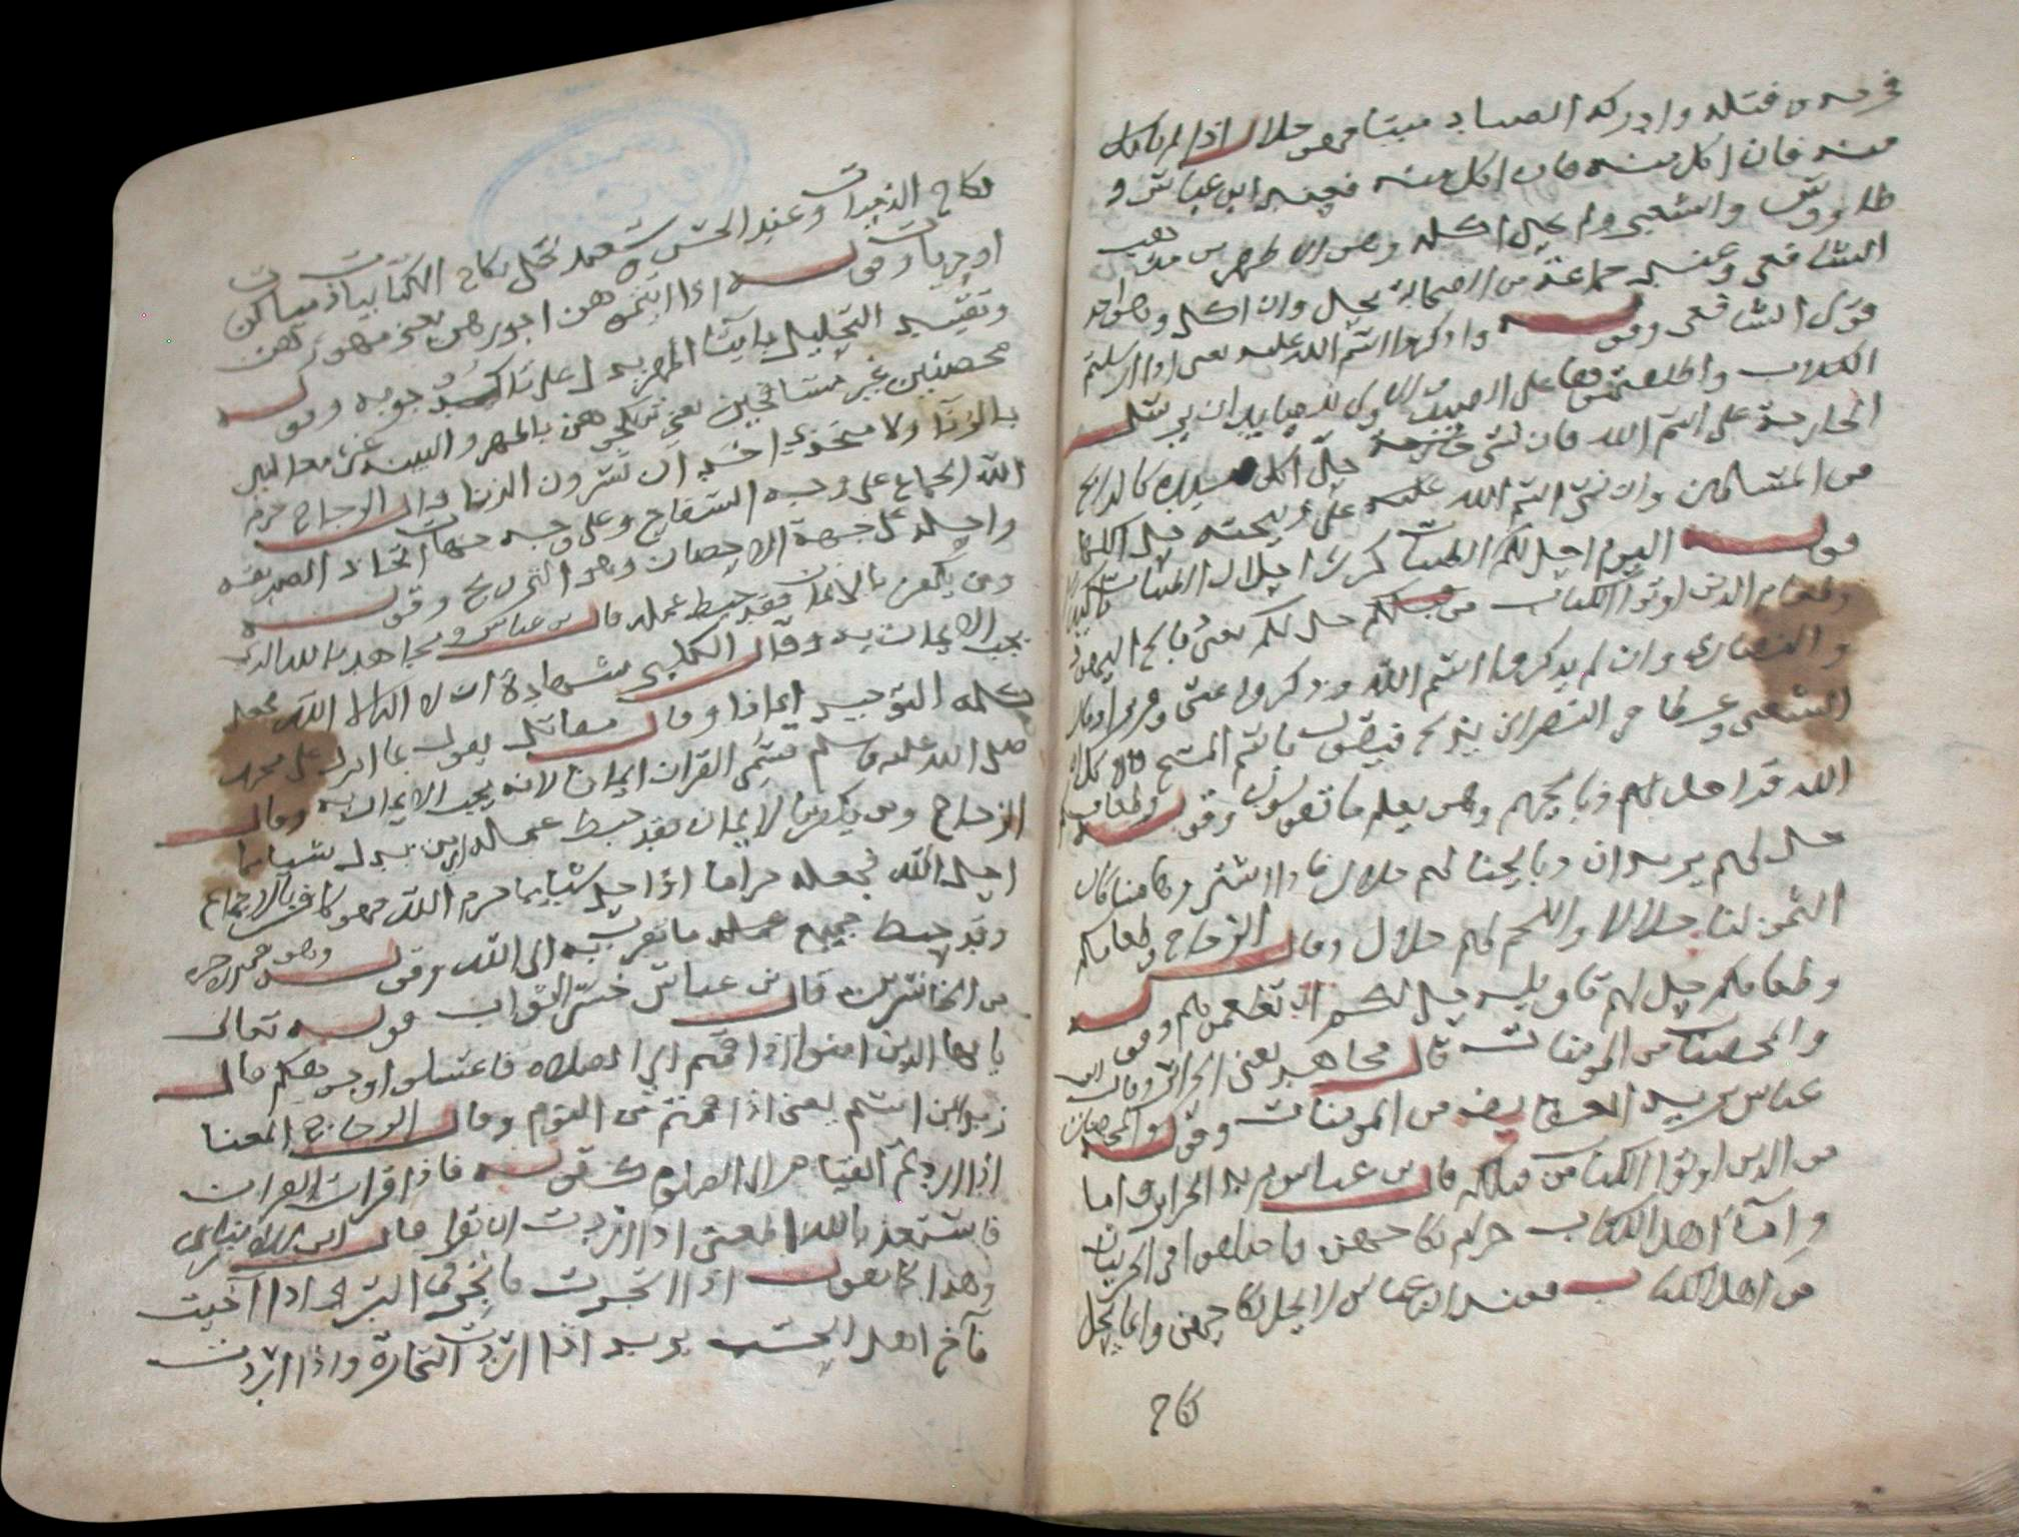 فجرحه او قتله وادركه الصياد ميتا فهو حلال اذا لم ياكل
منه فان اكل منه فان اكل منه فعند ابن عباس و
طاووس والشعبي ولم يحل اكله وهو الاظهر من مذهب
الشافعي وعند جماعة من الصحابة يحل وان اكل وهو احد
قولي الشافعي وقوله واذكروا اسم الله عليه يعني اذا ارسلتم
الكلاب واطلقتموها على الصيد الاولى للصياد ان يرسل
الجارحة على اسم الله فان نسي حل اكل كالذابح
من المسلمين وان نسي اسم الله عليه على ذبيحته حل اكلها
قوله اليوم احل لكم الطيبات كرر احلال الطيبات تاكيدا
وطعام الذين اوتوا الكتاب من قبلكم حل لكم يعني ذبايح اليهود
والنصارى وان لم يذكروا اسم الله وذكروا
الشعبي وعطا عن النصراني يذبح فيقول باسم المسيح قالا كل
الله قد احل لهم ذبايحهم وهو يعلم ما تقولون وقوله وطعامكم
حل لهم يريد ان ذبايحنا لهم حلال فاذا اشتروها منا كان
الثمن لنا حلالا واللحم لهم حلال وقال الزجاج وطعامكم
وطعامكم حل لهم تاويله حل لكم ان تطعموهم وقوله
والمحصنات من المومنات قال مجاهد يعني الحرائر وقال ابن
عباس يريد العفايف من المومنات وقوله والمحصنات
من الذين اوتوا الكتاب من قبلكم قال بن عباس يريد الحراير واما
واما اهل الكتاب حرام نكاحهن واختلفوا في الحربيات
من اهل الكتاب فعند ابن عباس لا يحل نكاحهن وانما يحل
نكاح
نكاح الذميات وعند الحسن تحل نكاح الكتابيات ذميات كن
او حربيات وقوله اذا اتيتموهن اجورهن يعني مهورهن
وتقييد التحليل بايتا المهر يدل على تاكيد وجوبه وقوله
محصنين غير مسافحين يعني تنكحوهن بالمهر والبينة غير معالنين
بالزنا ولا متخذي اخدان تسرون الزنا قال الزجاج حرم
الله الجماع على وجه السفاح وعلى وجه اتخاذ الصديقه
واحله على جهة الاحصان وهو التزويج وقوله
ومن يكفر بالايمان فقد حبط عمله قال بن عباس ومجاهد بالله الذي
يجب الايمان به وقال الكلبي بشهادة ان لا اله الا الله فجعل
كلمة التوحيد ايمانا وقال مقاتل يقول بما انزل على محمد
صلى الله عليه وسلم فسمي القران ايمانا لانه يجب الايمان به وقال
الزجاج ومن يكفر بالايمان فقد حبط عمله اي من بدل شيا مما
احل الله فجعله حراما او احل شيا مما حرم الله فهو كافر بالاجماع
وقد حبط جميع عمله ما تقرب به الى الله وقوله وهو في الاخرة
من الخاسرين قال بن عباس خسر الثواب قوله تعالى
يا ايها الذين امنوا اذا قمتم الى الصلاه فاغسلوا وجوهكم قال
زيد ابن اسلم يعني اذا قمتم من النوم وقال الزجاج المعنا
اذا اردتم القيام الى الصلوة كقوله فاذا قرات القران
فاستعذ بالله المعنى اذا اردت ان تقرا قال ابن الانباري
وهذا كما تقول اذا اتجرت فاتجر في البز و اذا اخيت
فاخ اهل الحسب يريد اذا اردت التجارة واذا اردت